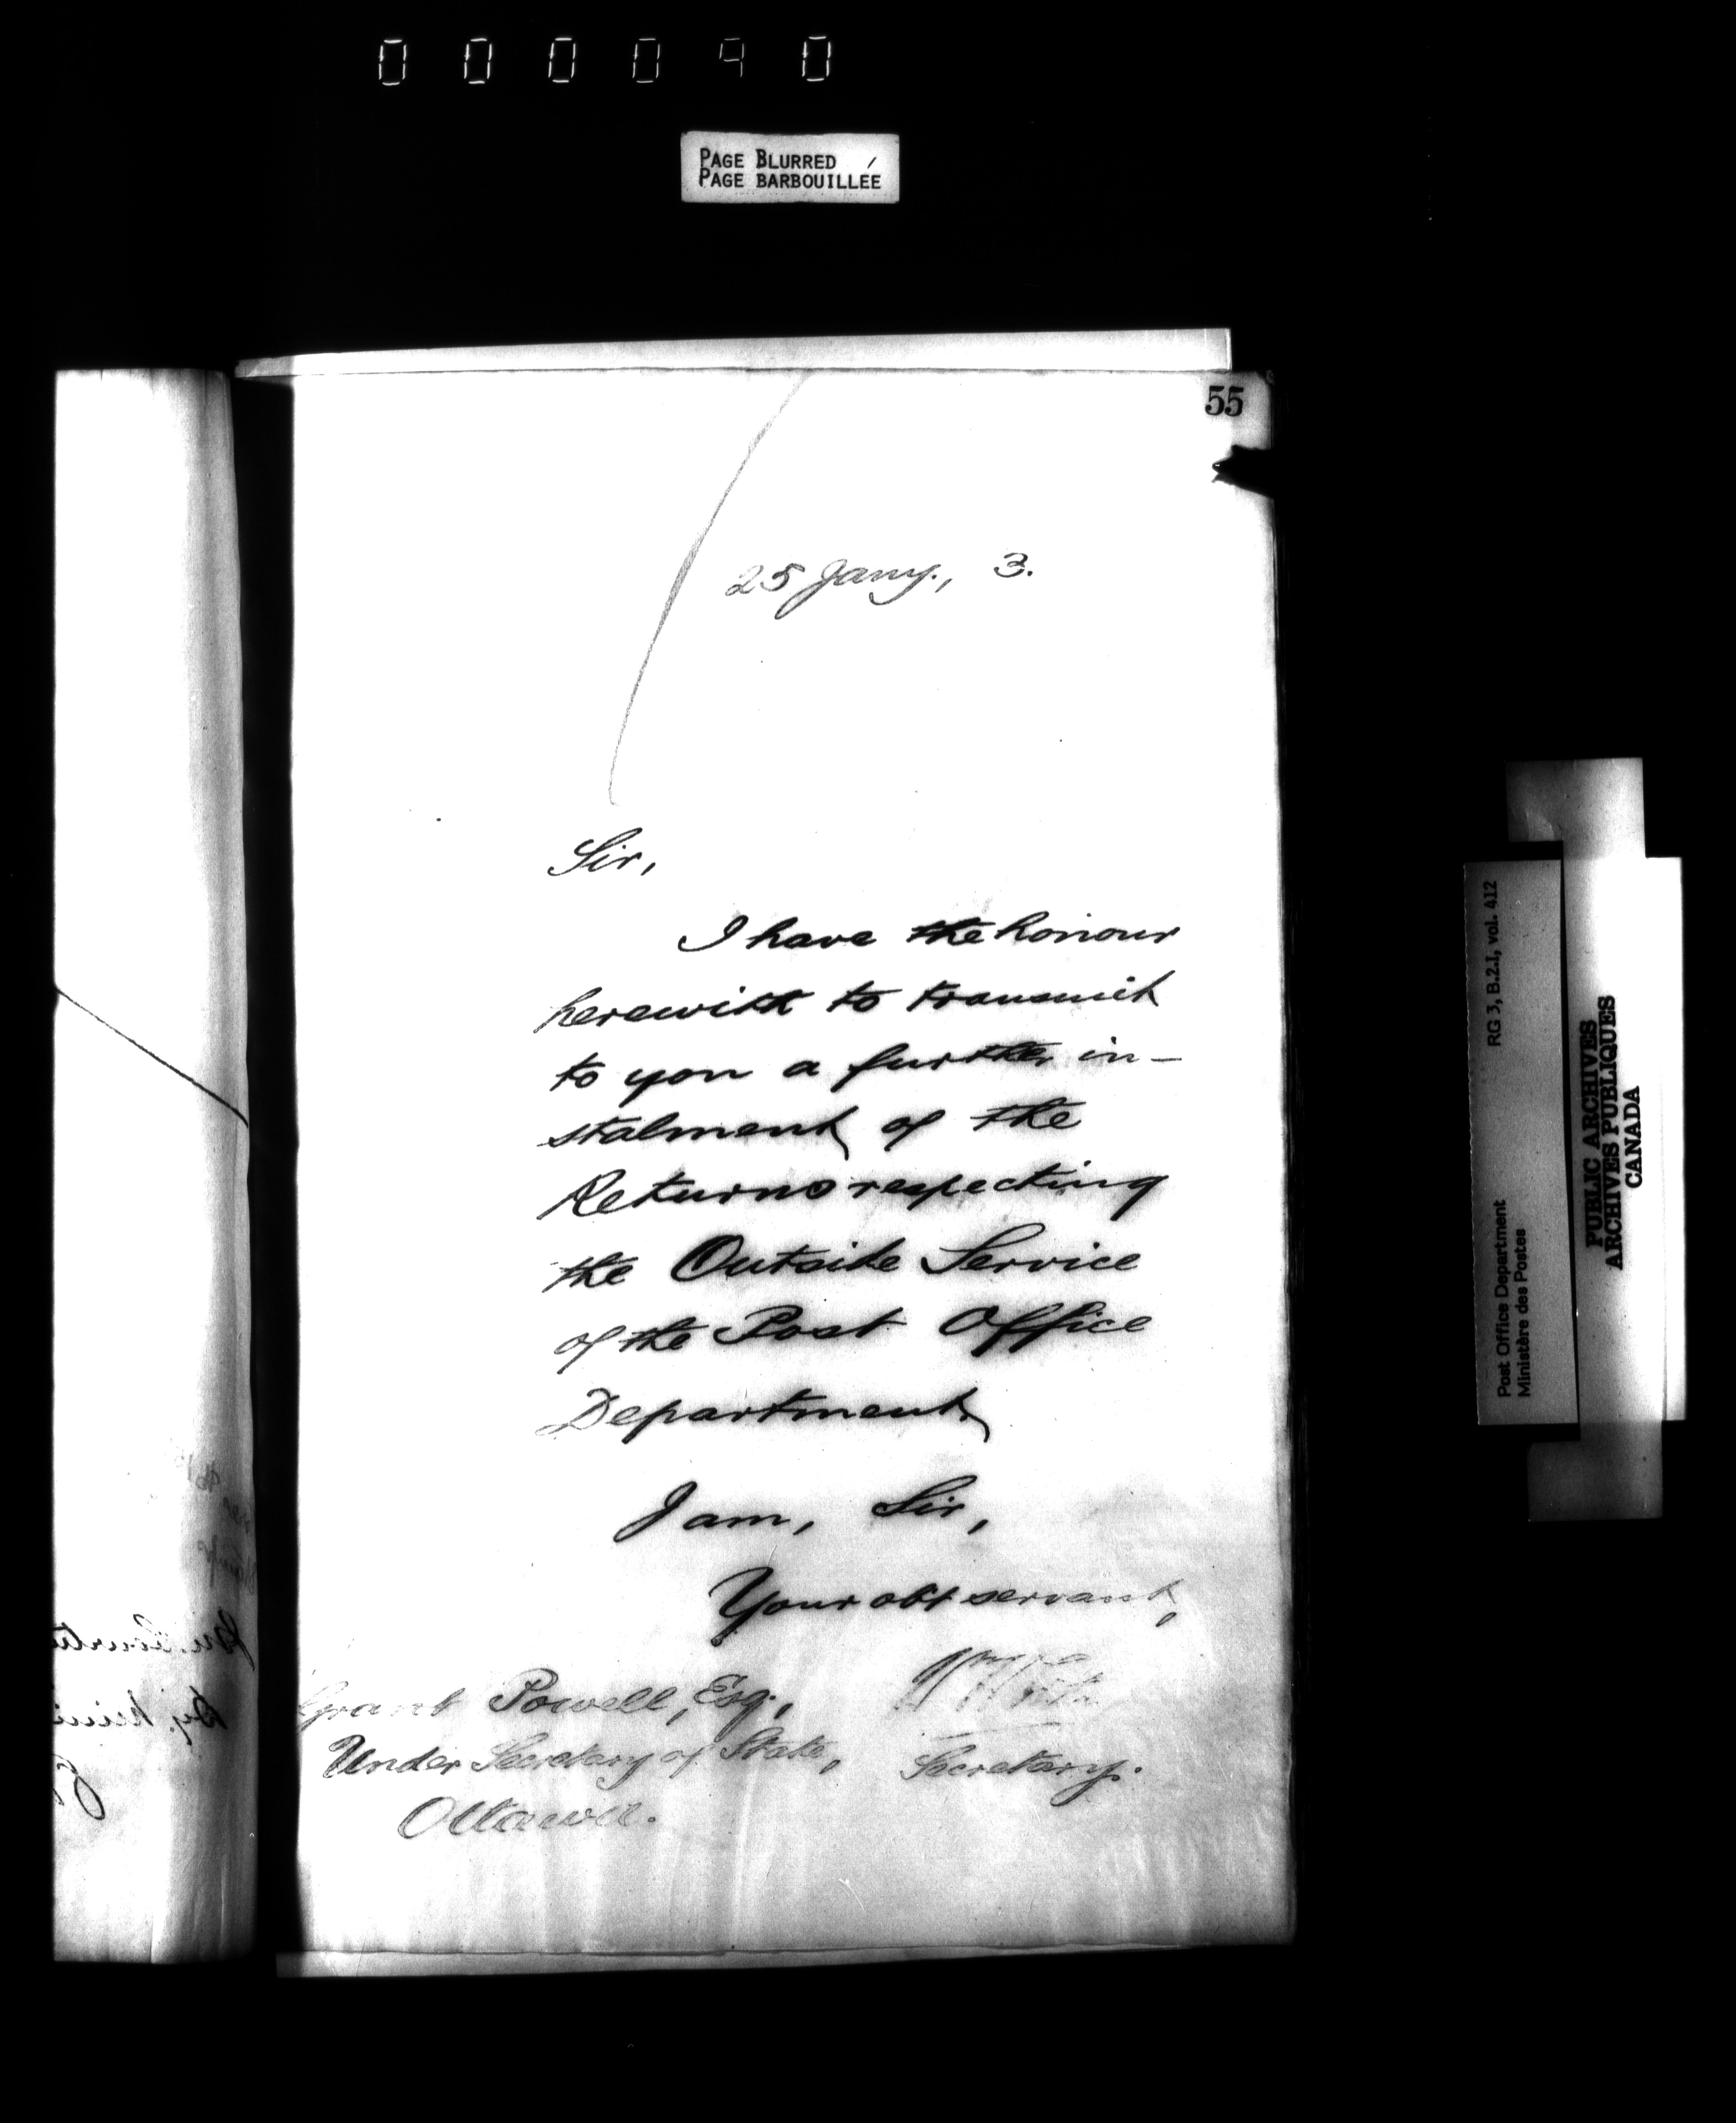 000040
PAGE BLURRED
PAGE BARBOUILLÉE
55
25 Jany., 3.
Sir,
I have the honour
herewith to transmit
to you a further in-
stalment of the
Returns respecting
the Outside Service
of the Post Office
Department,
I am, Sir,
Your obt servant,
Secretary.
Grant Powell, Esq.,
Under Secretary of State,
Ottawa.
RG 3, B.2.I, vol. 412
Post Office Department
Ministère des Postes
PUBLIC ARCHIVES
ARCHIVES PUBLIQUES
CANADA